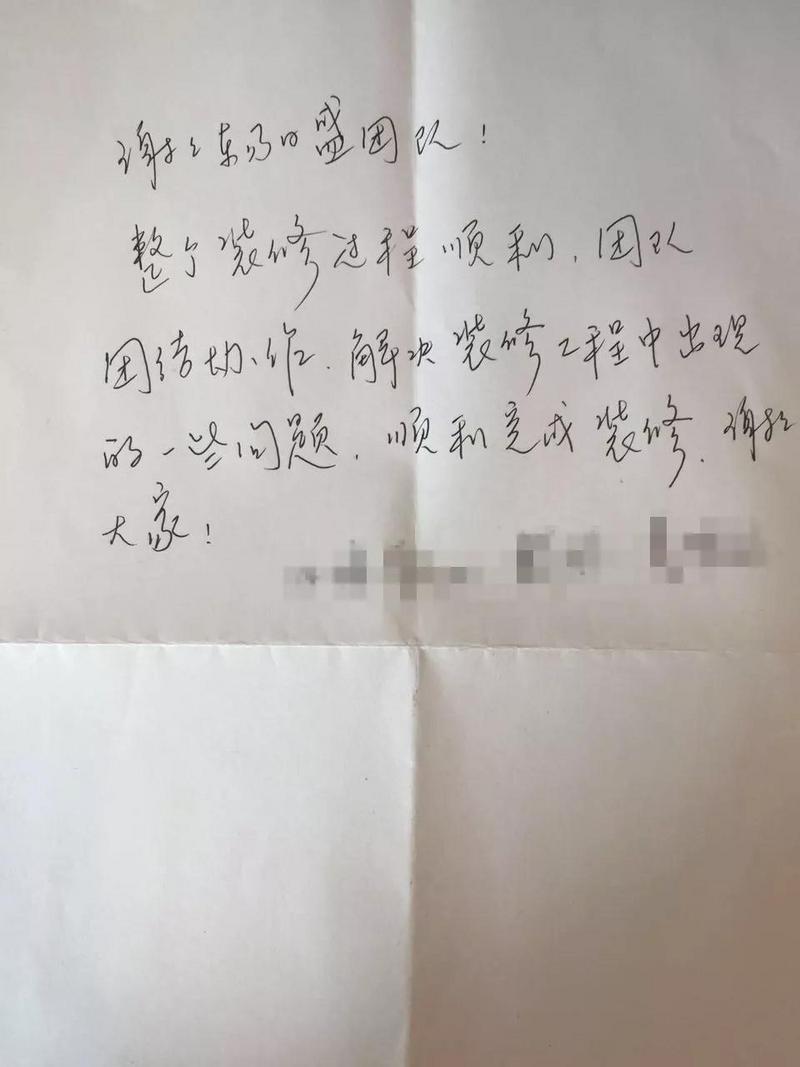 谢谢东易日盛团队!
整个装修过程顺利,团队
团结协作,解决装修工程中出现
的一些问题,顺利完成装修,谢谢
大家!